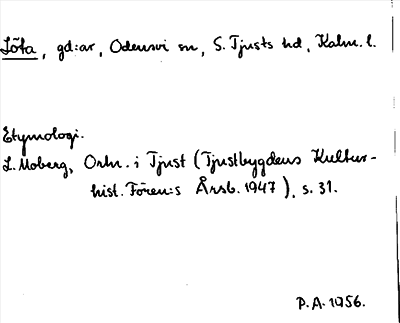 Löta, gd:ar, Odensvi sn, S. Tjusts hd, Kalm. l.
Etymologi.
L. Moberg, Ortn. i Tjust (Tjustbygdens Kultur-
hist. Fören:s Årsb. 1947), s. 31.
P.A. 1956.